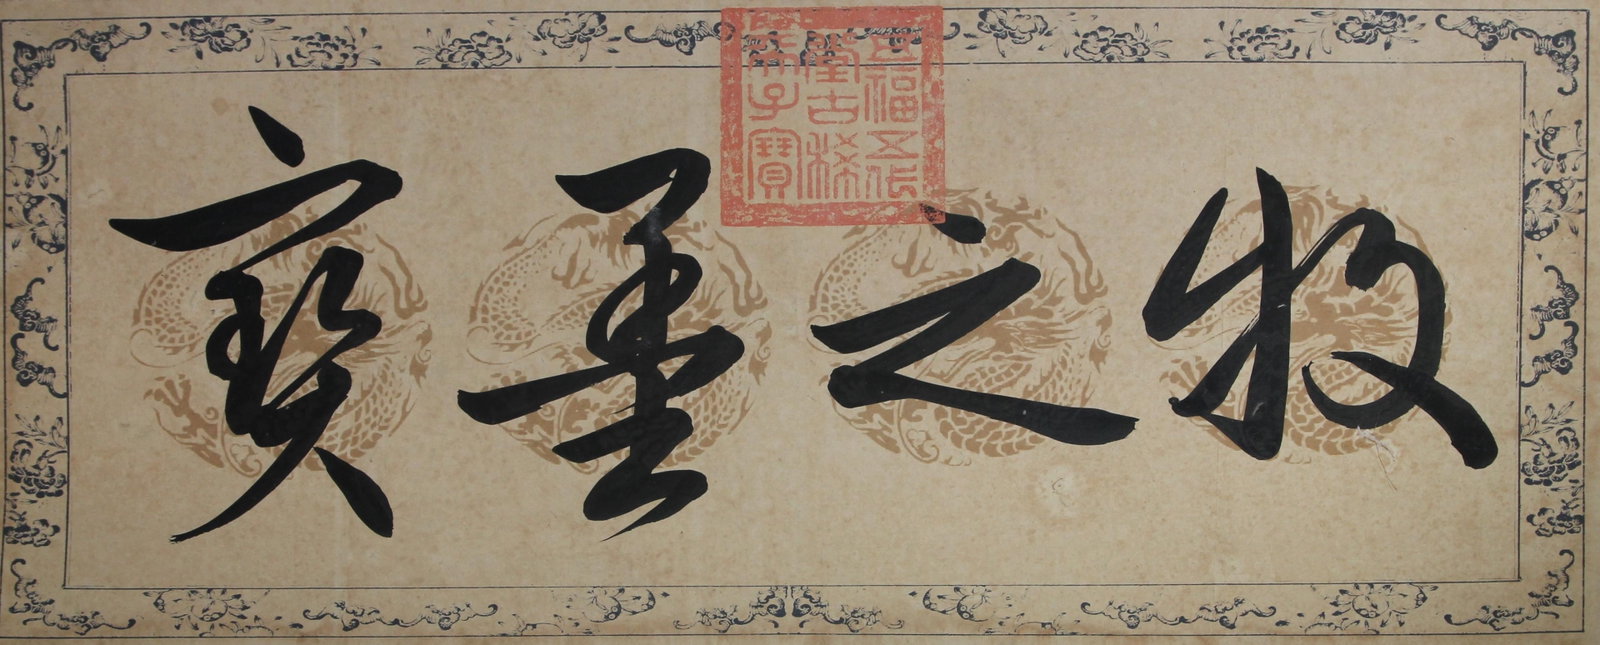 牧之墨寶
五福五代
堂古稀
天子寶